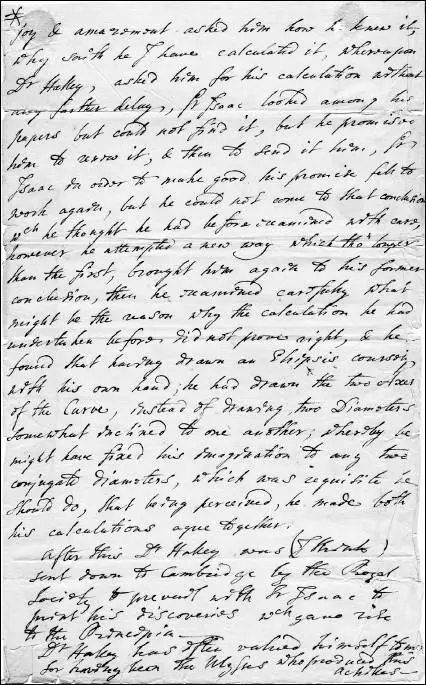 *
joy & amazement asked him how he knew it,
why saith he I have calculated it, whereupon
Dr Halley, asked him for his calculation without
any farther delay, Sr Isaac looked among his
papers but could not find it, but he promised
him to renew it, & then to send it him, Sr
Isaac in order to make good his promise fell to
work again, but he could not come to that conclusion
wch he thought he had before examined with care,
however he attempted a new way which tho' longer
than the first, brought him again to his former
conclusion, then he examined carefully what
might be the reason why the calculation he had
undertaken before did not prove right, & he
found that having drawn an Elipsis coursely,
with his own hand, he had drawn the two Axes
of the Curve, instead of drawing two Diameters
somewhat inclined to one another, whereby he
might have fixed his imagination to any two
conjugate diameters, which was requisite he
should do, that being perceived, he made both
his calculations agree together.
After this Dr Halley was (I think)
sent down to Cambridge by the Royal
Society to prevail with Sr Isaac to
print his discoveries wch gave rise
to the Principia
Dr Halley has often valued himself to me
for having been the Ulysses who produced this
Achilles